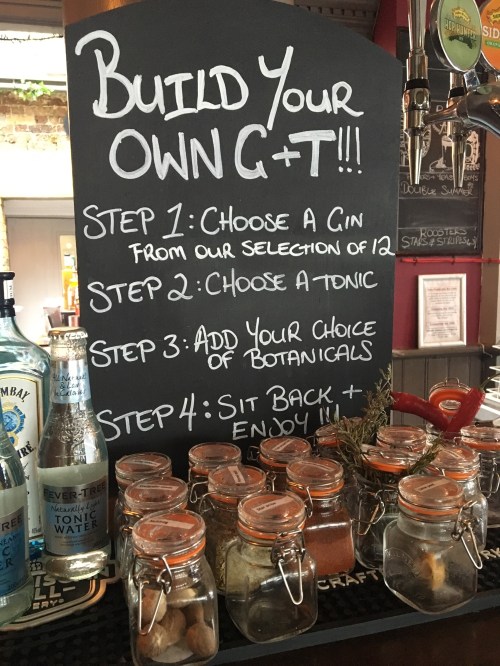 BUILD YOUR
OWN G+T!!!
STEP 1: CHOOSE A GIN
FROM OUR SELECTION OF 12
STEP 2: CHOOSE A TONIC
STEP 3: ADD YOUR CHOICE
OF BOTANICALS
STEP 4: SIT BACK +
ENJOY !!!
DOUBLE SUMMER
ROOSTERS
BAY
FEVER-TREE
Naturally Light
TONIC
WATER
CRAFT